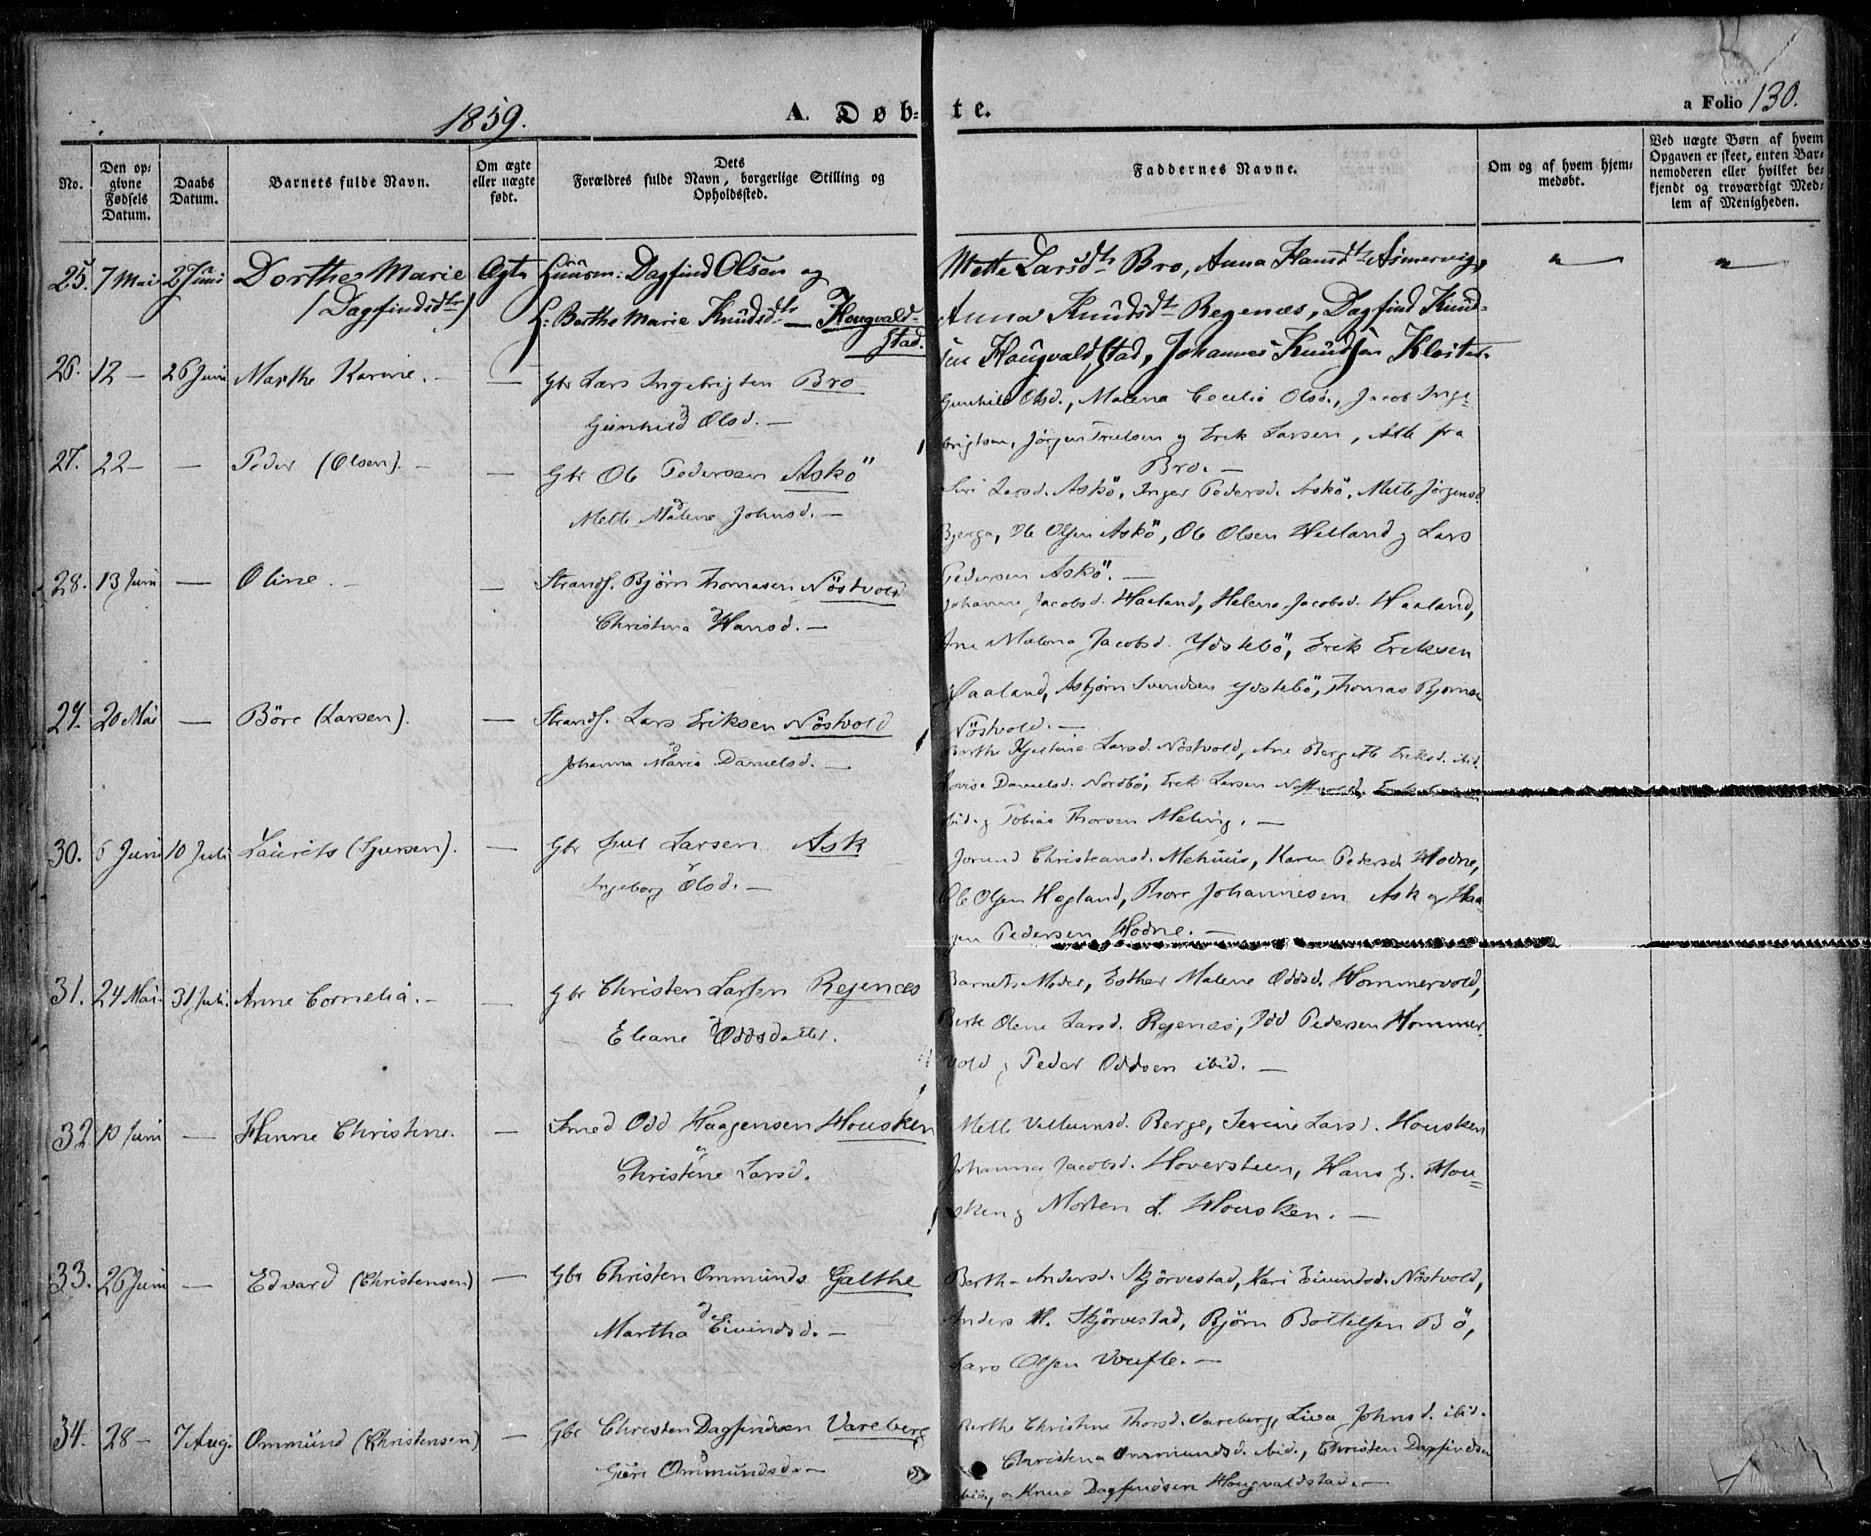 1859. A. Døb- te. a Folio 130.
No. Den op-givne Fødsels Datum. Daabs Datum. Barnets fulde Navn. Om ægte eller uægte født. Dets Forældres fulde Navn, borgerlige Stilling og Opholdssted. Faddernes Navne. Om og af hvem hjem-medøbt. Ved uægte Børn af hvem Opgaven er skeet, enten Bar-nemoderen eller hvilket be-kjendt og troværdigt Med-lem af Menigheden.
25. 7 Mai 2 Juni Dorthe Marie Ægte Huusm: Dagfind Olsen og Mette Larsdtr Bro, Anna Hansdtr Asmervig,
(Dagfindsdtr) H: Berthe Marie Knudsdtr — Hougvald- Anna Knudsdtr Regenæs, Dagfind Knud-
stad. sen Hougvaldstad, Johannes Knudsen Kloster.
26. 12 — 26 Juni Marthe Karine. — — Gbr Lars Ingebrigtsen Bro Gunhild Olsd., Malena Cecilia Olsd., Jacob Inge-
Gunhild Olsd. — brigtsen, Jørgen Truelsen og Erik Larsen, Alle fra
Bro. —
27. 22 — — Peder (Olsen). — — Gbr Ole Pedersen Askö Siri Larsd. Askö, Inger Pedersd. Askö, Mette Jörgensd
Mette Malene Johnsd. — Bjerga, Ole Olsen Askö, Ole Olsen Helland og Lars
Pedersen Askö. —
28. 13 Juni — Oline. — — Strands. Bjørn Thomasen Nöstvold Johanne Jacobsd. Haaland, Helena Jacobsd. Haaland,
Christina Hansd. — Ane Malena Jacobsd. Ydstebö, Erik Eriksen
Haaland, Asbjörn Svendsen Ydstebö, Thomas Bjørnsen
Nöstvold. —
29. 20 Mai — Böre (Larsen). — Strands. Lars Eriksen Nöstvold Berthe Kjestine Larsd. Nöstvold, Ane Bergitte Eriksd. ibid.
Johanna Maria Danielsd. — Lovise Danielsd. Nordbö, Erik Larsen Nöstvold,
ibid og Tobias Thorsen Meling. —
30. 5 Juni 10 Juli Laurits (Sjursen). — Gbr Sjur Larsen Ask Jorund Christeansd. Mehuus, Karen Pedersd. Hodne,
Ingeborg Olsd. — Ole Olsen Hegland, Thore Johannesen Ask og Haa-
gen Pedersen Hodne. —
31. 24 Mai. 31 Juli. Anne Cornelia. — — Gbr Christen Larsen Regenæs Barnets Moder, Esther Malene Oddsd. Hommervold,
Eleane Oddsdatter. Berte Olene Larsd. Regenæs, Odd Pedersen Hommer-
vold, Peder Oddsen ibid. —
32 10 Juni — Hanne Christine. — Smed Odd Haagensen Housken Mette Villumsd. Berge, Serine Larsd. Housken
Christine Larsd. Johanna Jacobsd. Hoversteen, Hans G. Hou-
sken og Morten L. Housken. —
33. 26 Juni — Edvard (Christensen) — Gbr Christen Ommunds. Galthe Berthe Andersd. Skjörvestad, Kari Eivendsd. Nöstvold,
Martha Eivindsd. — Anders H. Skjörvestad, Bjørn Bottelsen Bö,
Lars Olsen Voufle. —
34. 28 — 7 Aug. Ommund (Christensen) — Gbr Christen Dagfindsen Vareberg Berthe Christine Thorsd. Vareberg, Liva Johnsd. ibid.
Guri Ommundsd. — Christena Ommundsd. ibid., Christen Dagfindsen
ibid, og Knud Dagfindsen Hougvaldstad. —